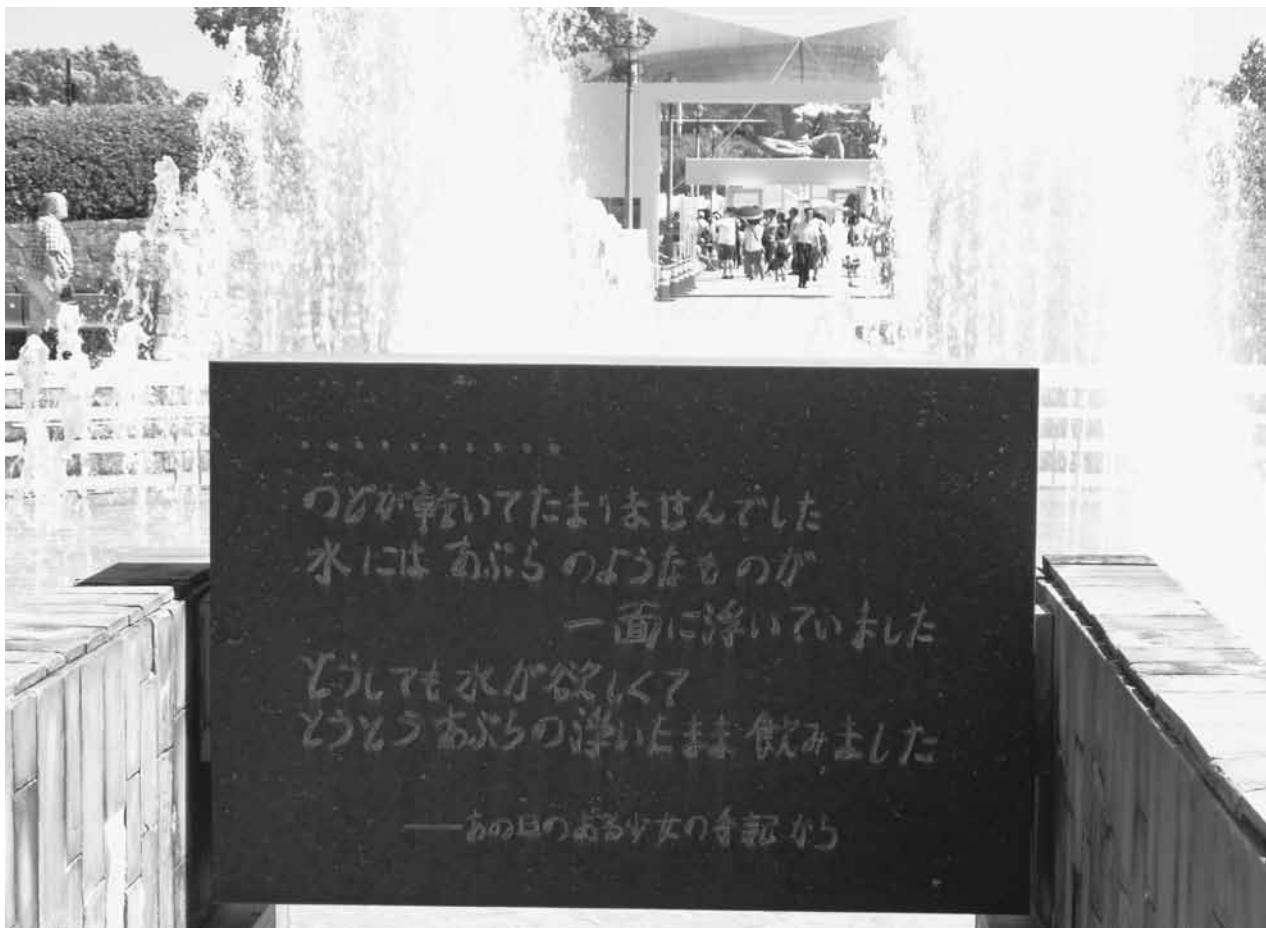 ・・・・・・・・・・
のどが乾いてたまりませんでした
水には あぶら のようなものが
一面に浮いていました
どうしても水が欲しくて
とうとうあぶらの浮いたまま飲みました
――あの日のある少女の手記から